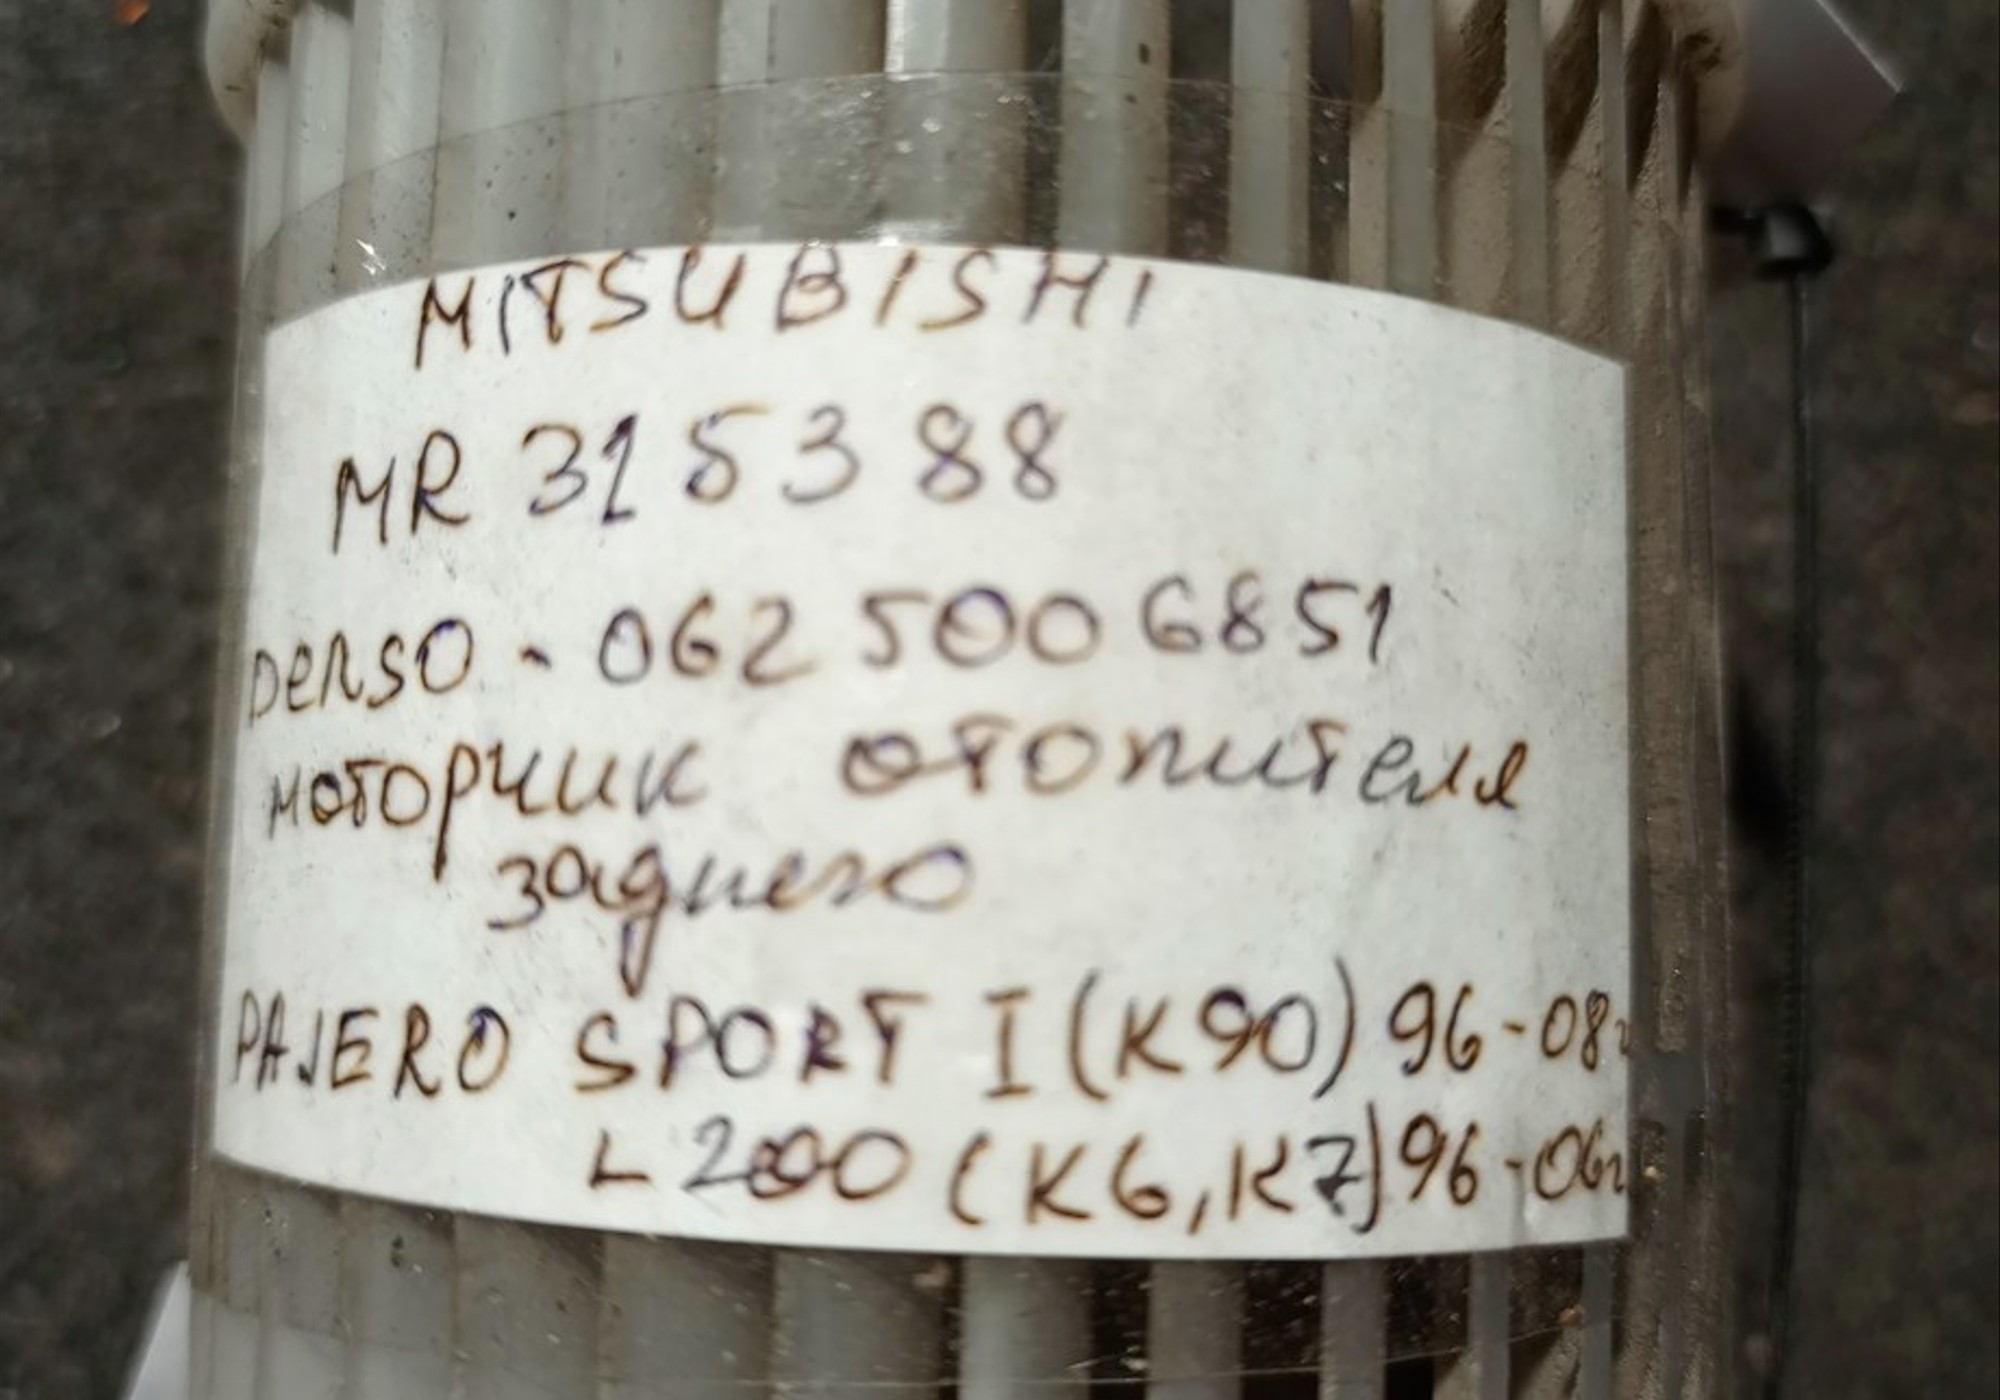 MITSUBISHI
MR 315388
DENSO - 062 500 6851
моторчик отопителя
заднего
PAJERO SPORT I (K90) 96-08г
L200 (K6, K7) 96-06г